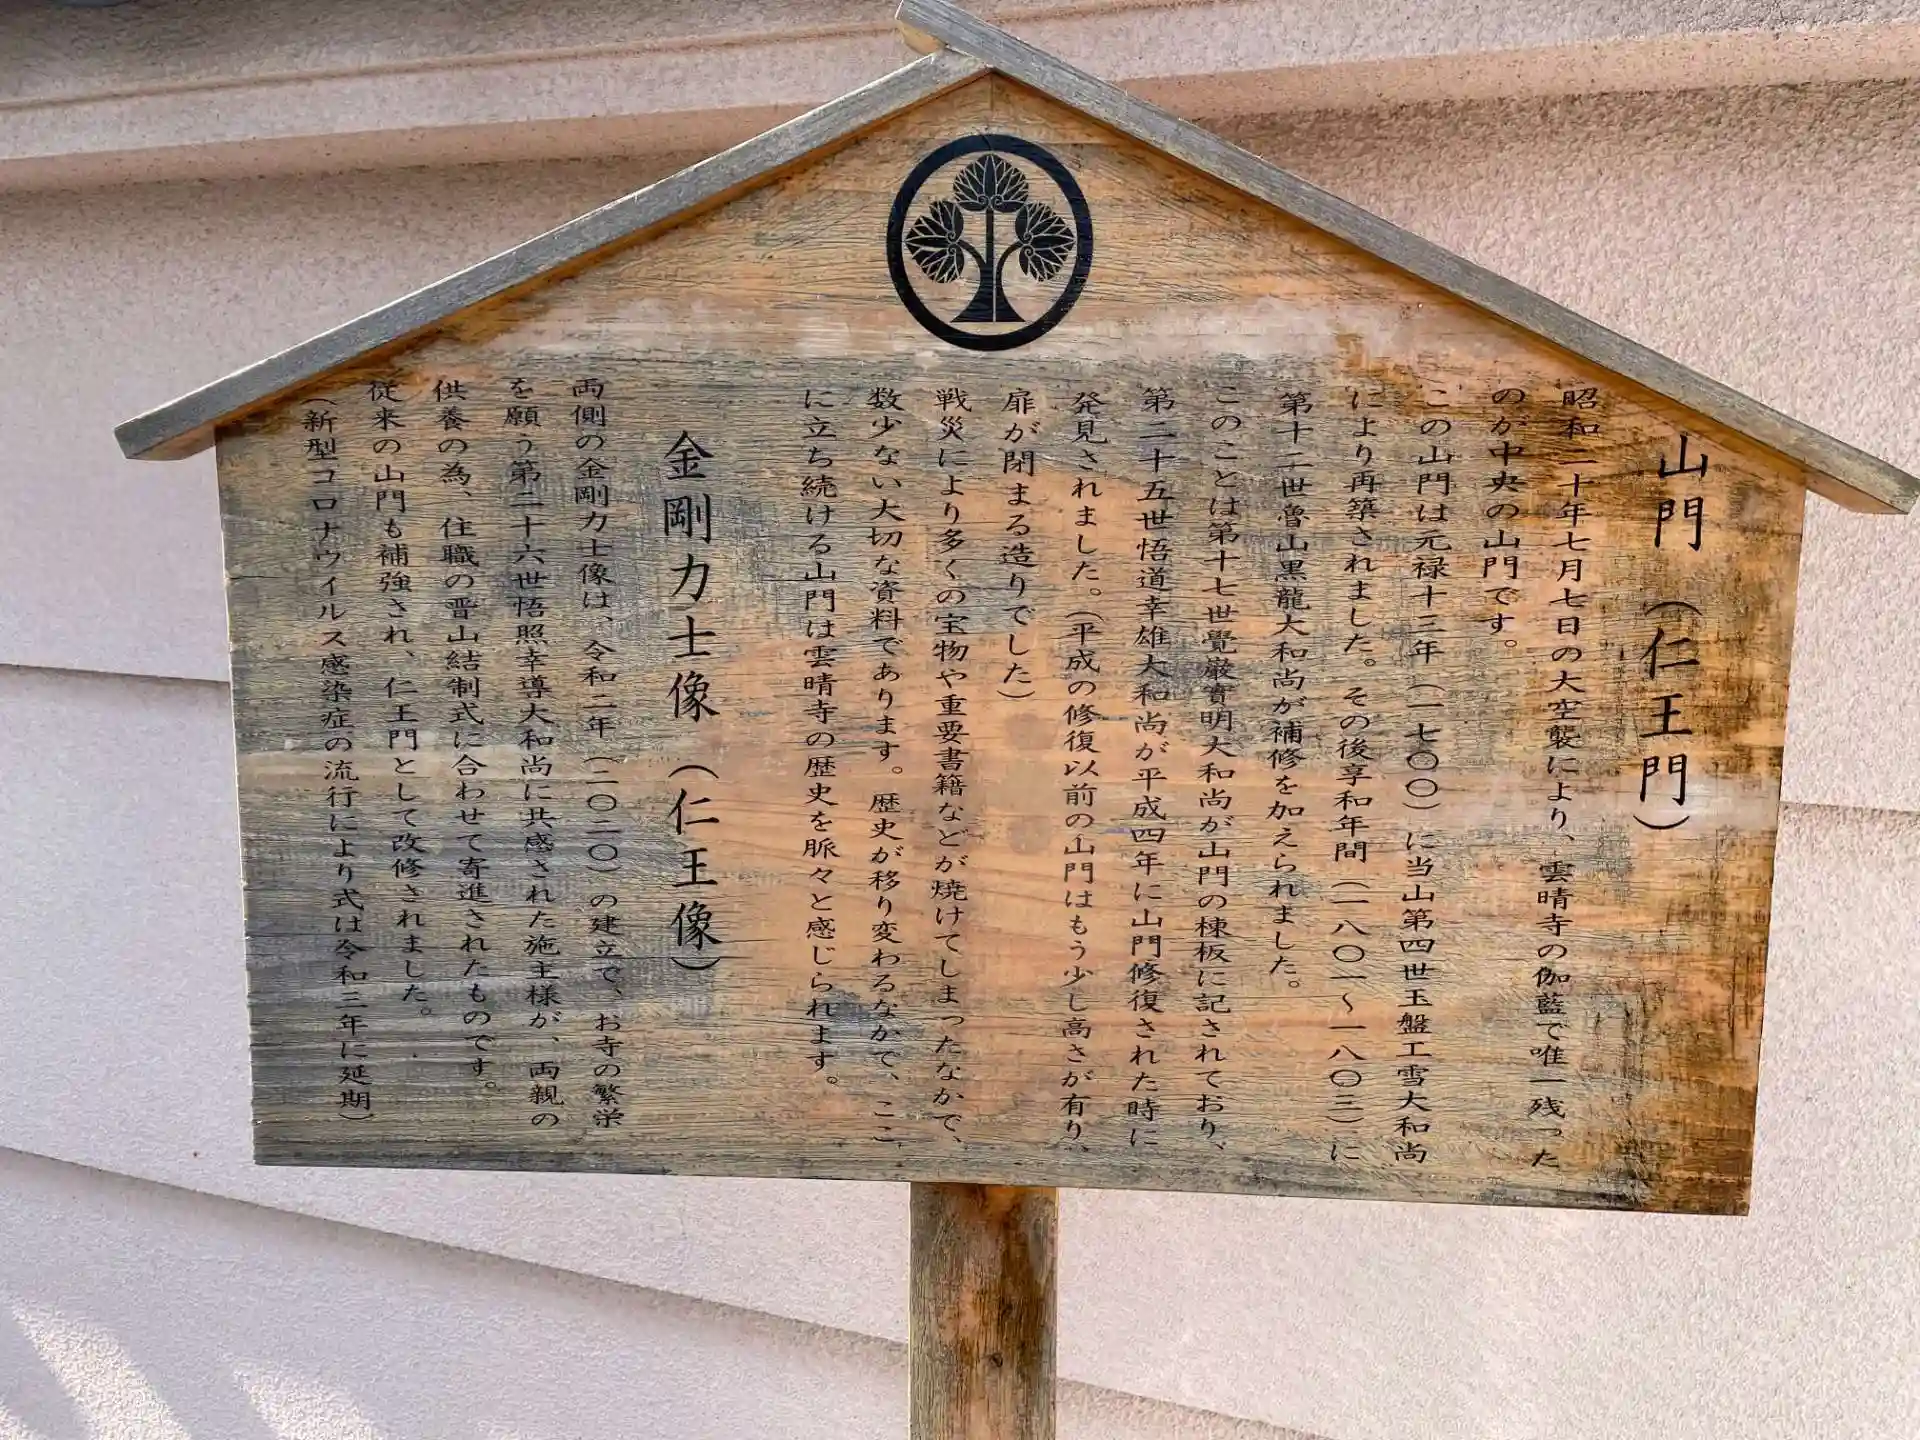 山門（仁王門）
昭和二十年七月七日の大空襲により、雲晴寺の伽藍で唯一残った
のが中央の山門です。
この山門は元禄十三年（一七〇〇）に当山第四世玉盤工雪大和尚
により再築されました。その後享和年間（一八〇一〜一八〇三）に
第十二世魯山黒龍大和尚が補修を加えられました。
このことは第十七世覺巌實明大和尚が山門の棟板に記されており、
第二十五世悟道幸雄大和尚が平成四年に山門修復された時に
発見されました。（平成の修復以前の山門はもう少し高さが有り、
扉が閉まる造りでした）
戦災により多くの宝物や重要書籍などが焼けてしまったなかで、
数少ない大切な資料であります。歴史が移り変わるなかで、ここ
に立ち続ける山門は雲晴寺の歴史を脈々と感じられます。
金剛力士像（仁王像）
両側の金剛力士像は、令和二年（二〇二〇）の建立で、お寺の繁栄
を願う第二十六世悟照幸導大和尚に共感された施主様が、両親の
供養の為、住職の晋山結制式に合わせて寄進されたものです。
従来の山門も補強され、仁王門として改修されました。
（新型コロナウイルス感染症の流行により式は令和三年に延期）